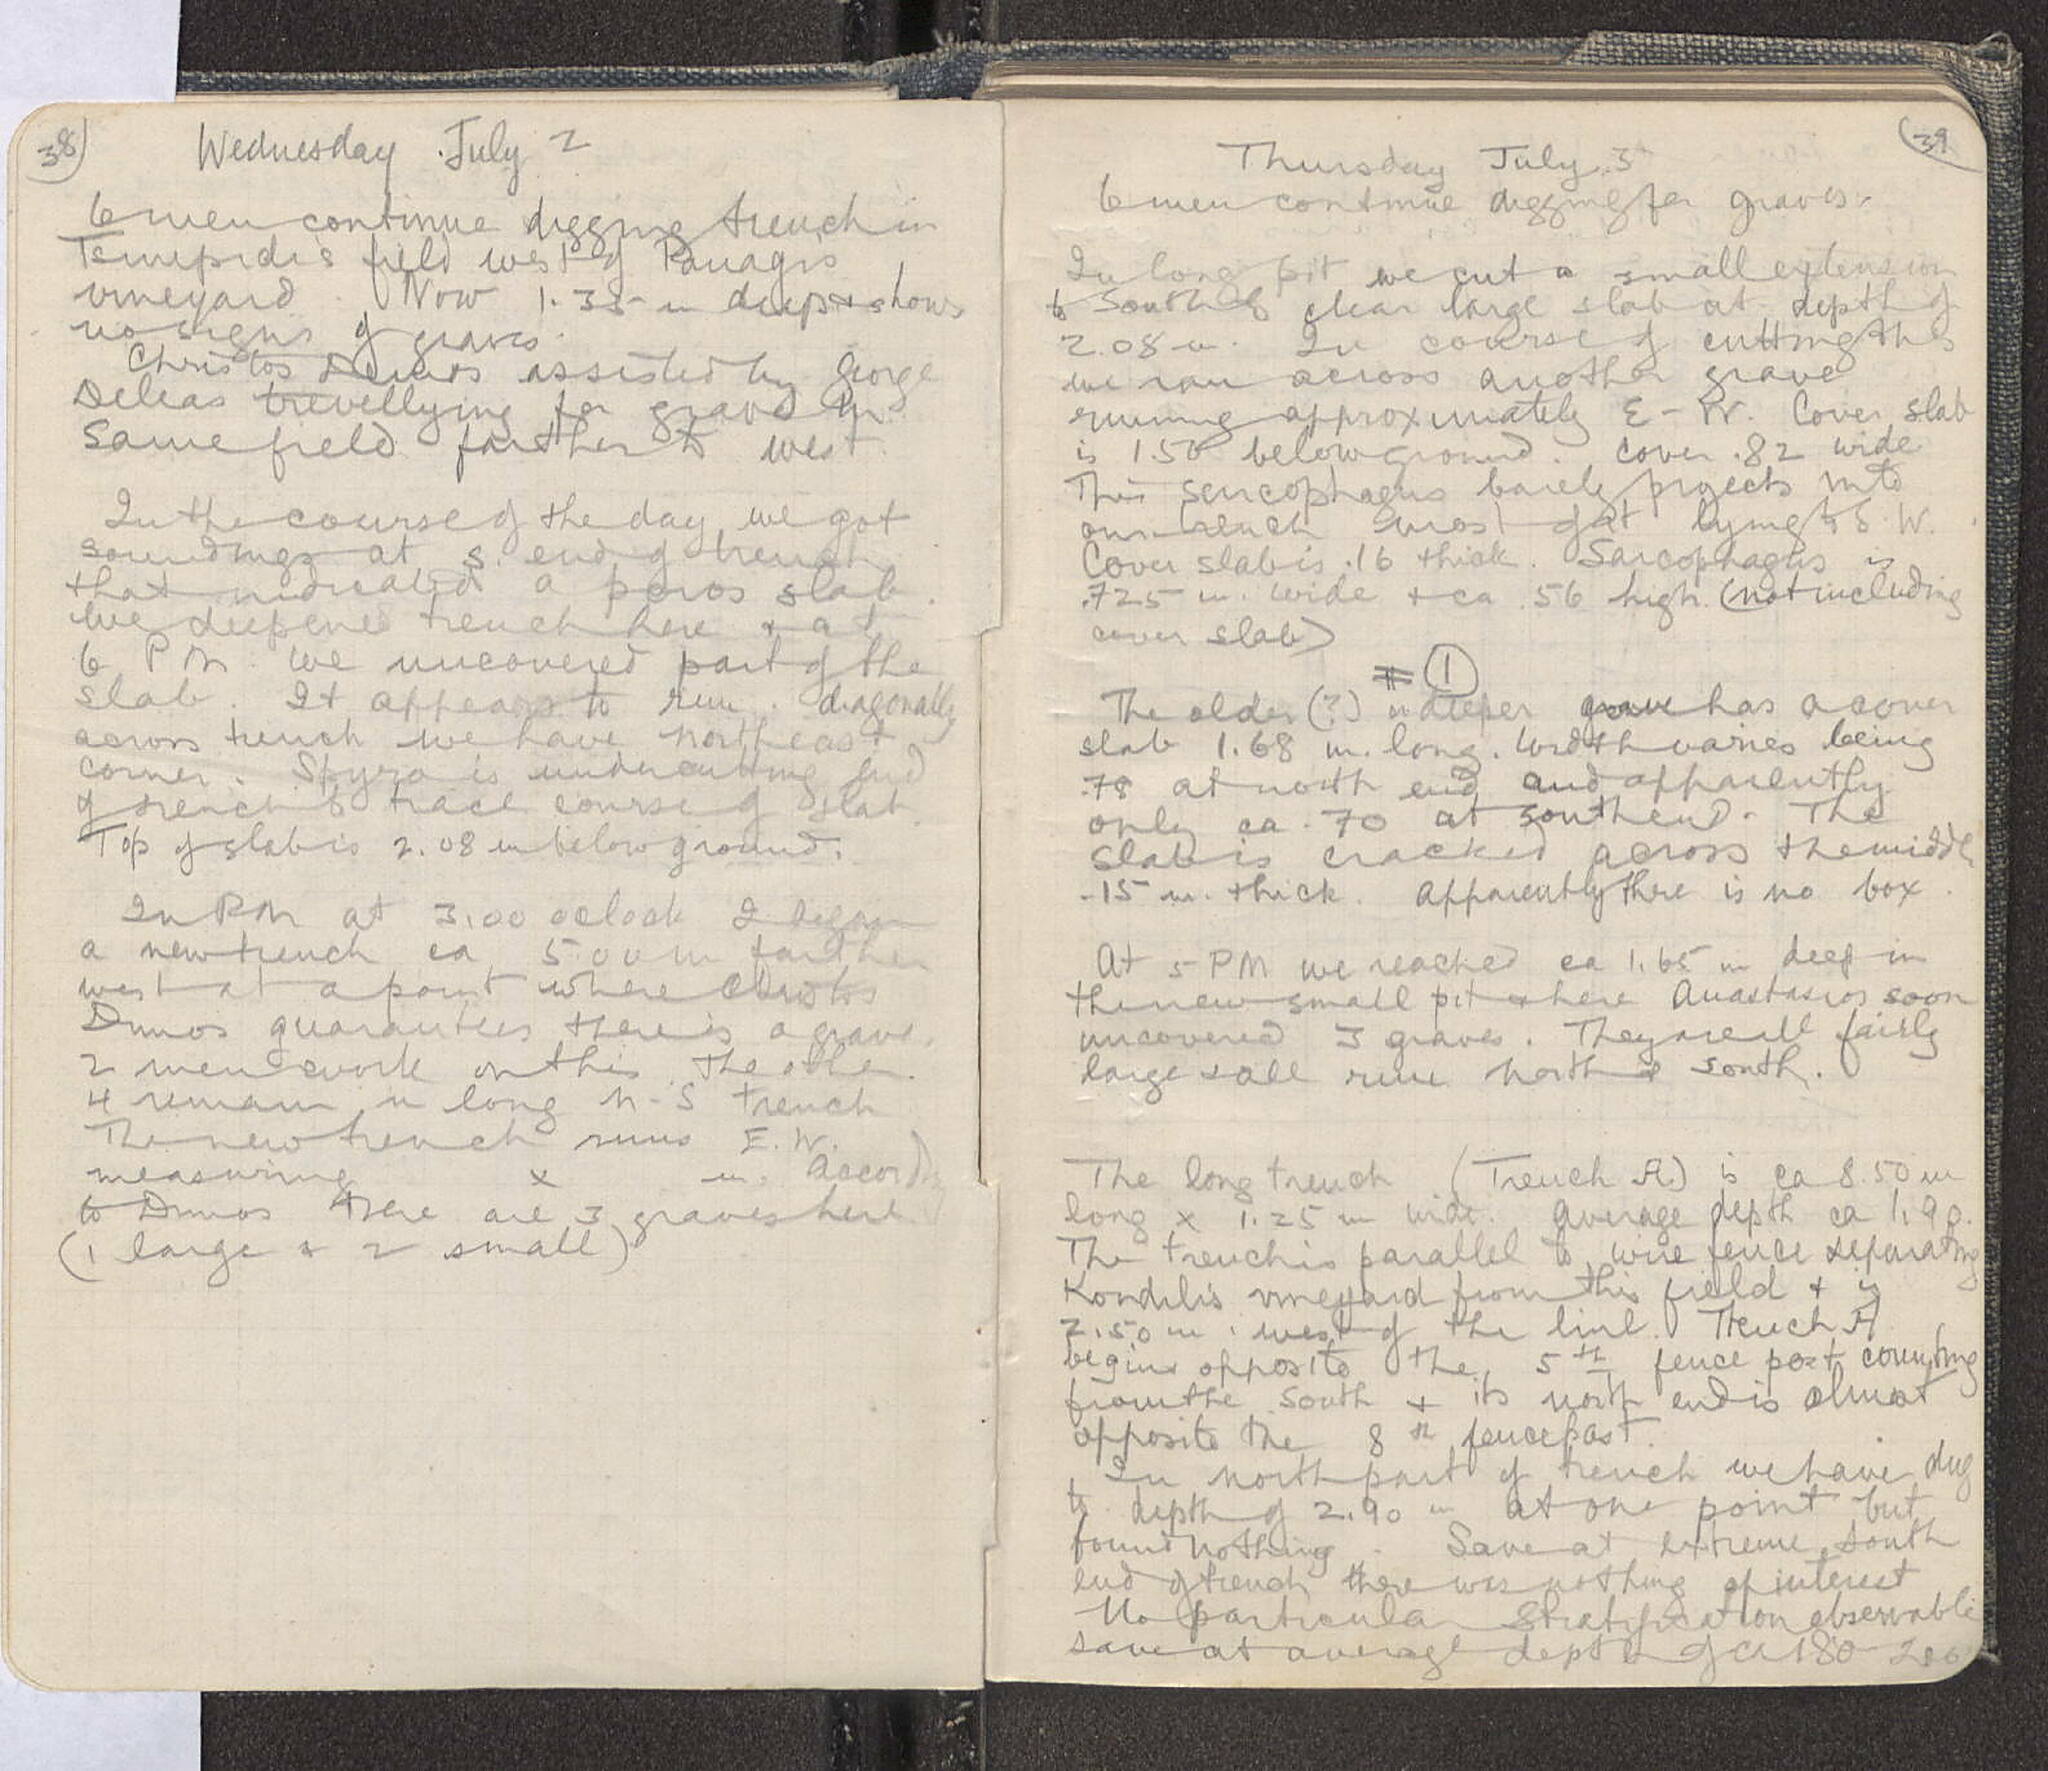 38)
Wednesday July 2
6 men continue digging trench in
field west of Panagis
vineyard. Now 1.35 m deep & shows
no signs of graves.
Christos Dimos assisted by George
Deleas trevellying for graves in
same field farther to west.
In the course of the day we got
soundings at S. end of trench
that indicated a poros slab.
We deepened trench here & at
6 PM we uncovered part of the
slab. It appears to run diagonally
across trench we have northeast
corner. Spyro is undercutting end
of trench to trace course of slab.
Top of slab is 2.08 m below ground.
In PM at 3.00 oclock I began
a new trench ca 5.00 m farther
west at a point where Christos
Dimos guarantees there is a grave.
2 men work on this. The other
4 remain in long N-S trench
The new trench runs E.W.
measuring x m. Accordg
to Dimos there are 3 graves here
(1 large & 2 small)
(39
Thursday July 3
6 men continue digging for graves.
In long pit we cut a small extension
to south to clear large slab at depth of
2.08 m. In course of cutting this
we ran across another grave
running approximately E-W. Cover slab
is 1.50 below ground. Cover .82 wide
This sarcophagus barely projects into
our trench most of it lying to S.W.
Cover slab is .16 thick. Sarcophagus is
.725 m. wide & ca .56 high. (not including
cover slab)
# 1
The older (?) deeper grave has a cover
slab 1.68 m. long. Width varies being
.78 at north end and apparently
only ca .70 at south end. The
slab is cracked across the middle
.15 m. thick. Apparently there is no box.
At 5 PM we reached ca 1.65 m deep in
the new small pit & here Anastasios soon
uncovered 3 graves. They are all fairly
large & all run north & south.
The long trench (Trench A) is ca 8.50 m
long x 1.25 m wide. Average depth ca 1.90.
The trench is parallel to wire fence separating
Kondilis vineyard from this field & is
2.50 m. west of the line. Trench A
begins opposite the 5th fence post counting
from the south & its north end is almost
opposite the 8th fence post.
In north part of trench we have dug
to depth of 2.90 m at one point but
found nothing. Save at extreme south
end of trench there was nothing of interest
No particular stratification observable
save at average depth of ca 1.80